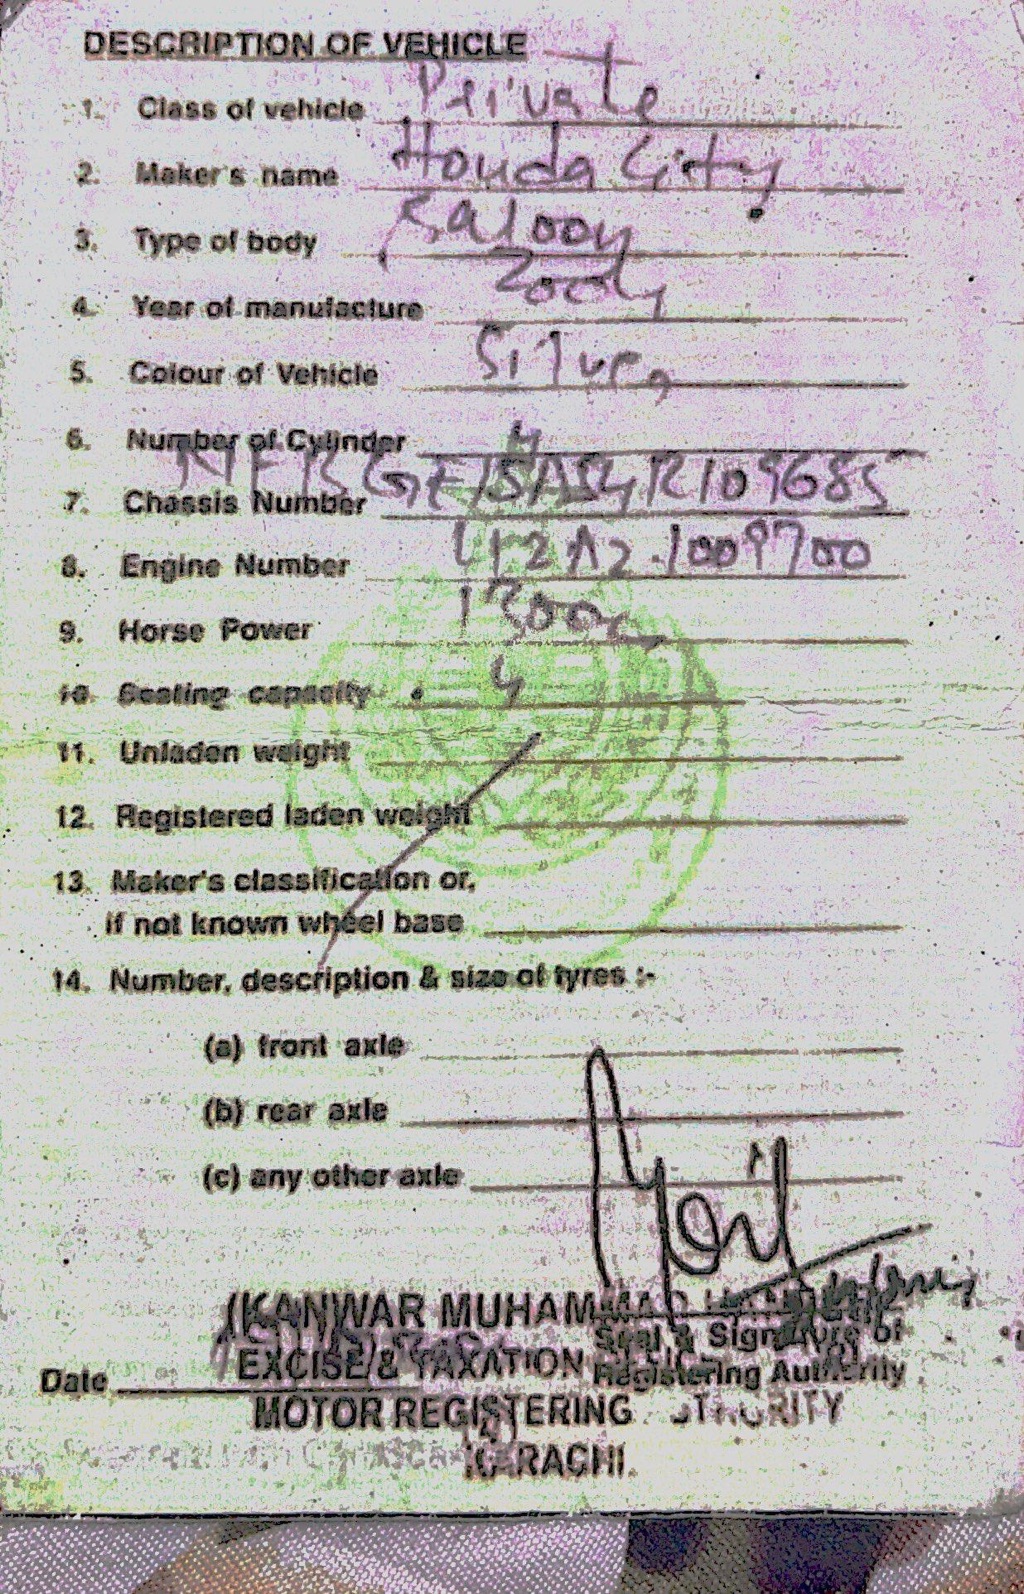 DESCRIPTION OF VEHICLE
1. Class of vehicle Private
2. Maker's name Honda City
3. Type of body Saloon
4. Year of manufacture 2004
5. Colour of Vehicle Silver
6. Number of Cylinder 4
7. Chassis Number
8. Engine Number 1009700
9. Horse Power 1300cc
10. Seating capacity 4
11. Unladen weight
12. Registered laden weight
13. Maker's classification or,
if not known wheel base
14. Number, description & size of tyres :-
(a) front axle
(b) rear axle
(c) any other axle
(KANWAR MUHAMMAD
Seal & Signature of
EXCISE & TAXATION Registering Authority
Date
MOTOR REGISTERING AUTHORITY
KARACHI.